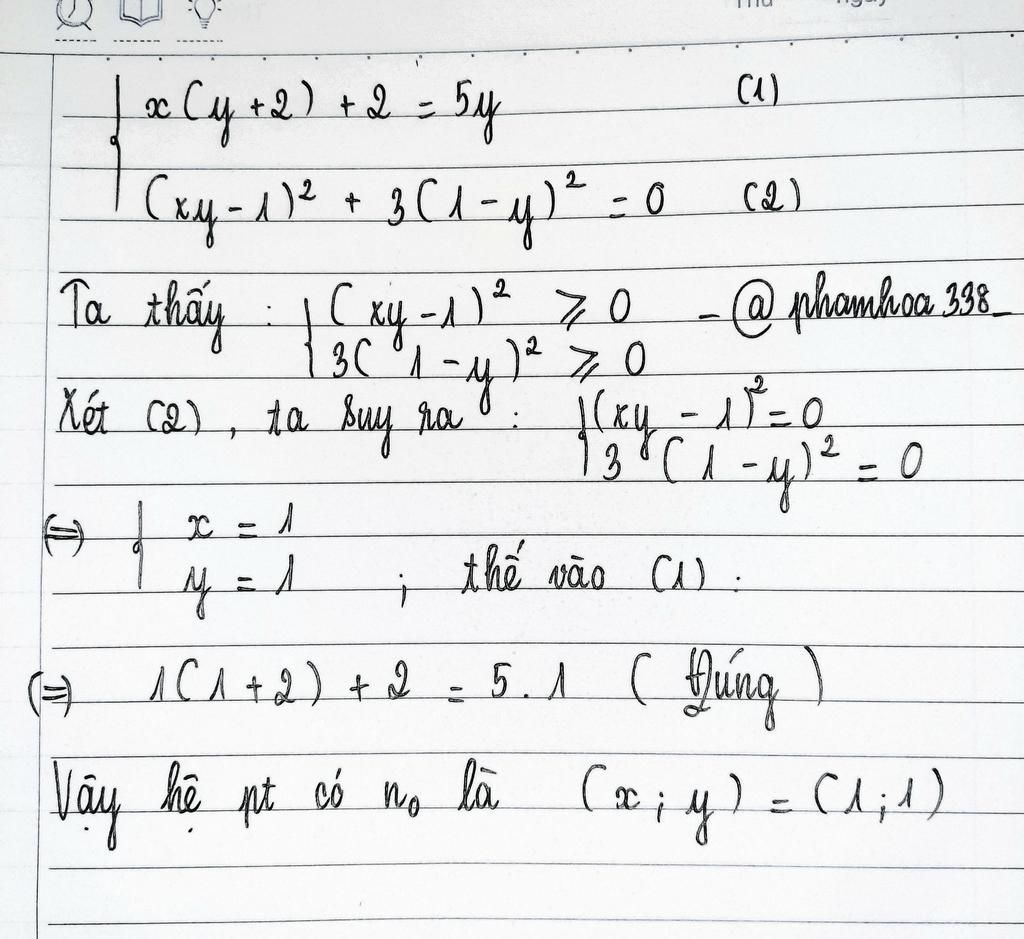 Thứ ngày
x(y+2) + 2 = 5y (1)
(xy-1)² + 3(1-y)² = 0 (2)
Ta thấy : (xy-1)² ⩾ 0 - @phamhoa338_
3(1-y)² ⩾ 0
Xét (2), ta suy ra : (xy-1)² = 0
3(1-y)² = 0
(=) x = 1
y = 1 ; thế vào (1) :
(=) 1(1+2) + 2 = 5.1 (Đúng)
Vậy hệ pt có n₀ là (x;y) = (1;1)